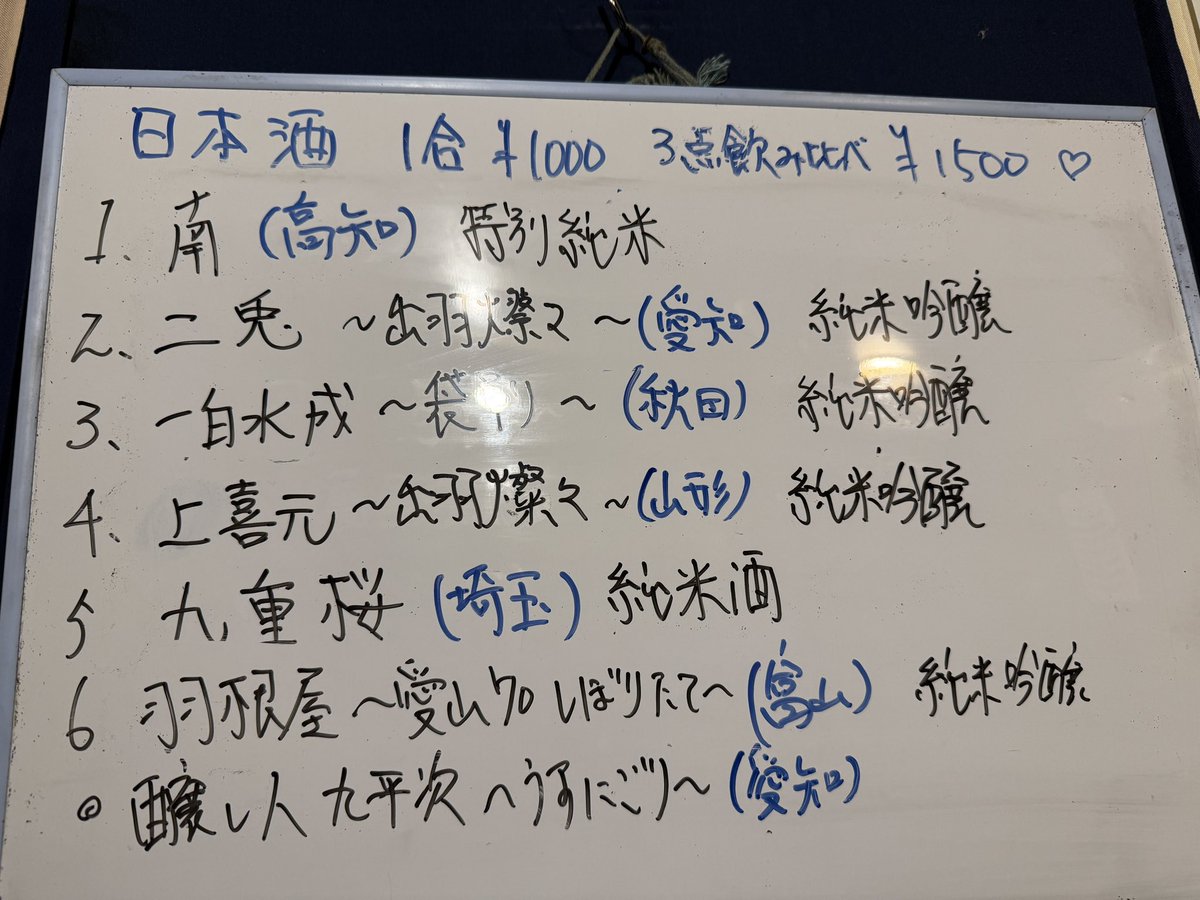 日本酒 1合 ¥1000 3点飲み比べ ¥1500 ♡
1、南 (高知) 特別純米
2、二兎 〜出羽燦々〜 (愛知) 純米吟醸
3、一白水成 〜袋吊り〜 (秋田) 純米吟醸
4、上喜元 〜出羽燦々〜 (山形) 純米吟醸
5 九重桜 (埼玉) 純米酒
6 羽根屋 〜愛山70 しぼりたて〜 (富山) 純米吟醸
◎ 醸し人 九平次 〜うすにごり〜 (愛知)